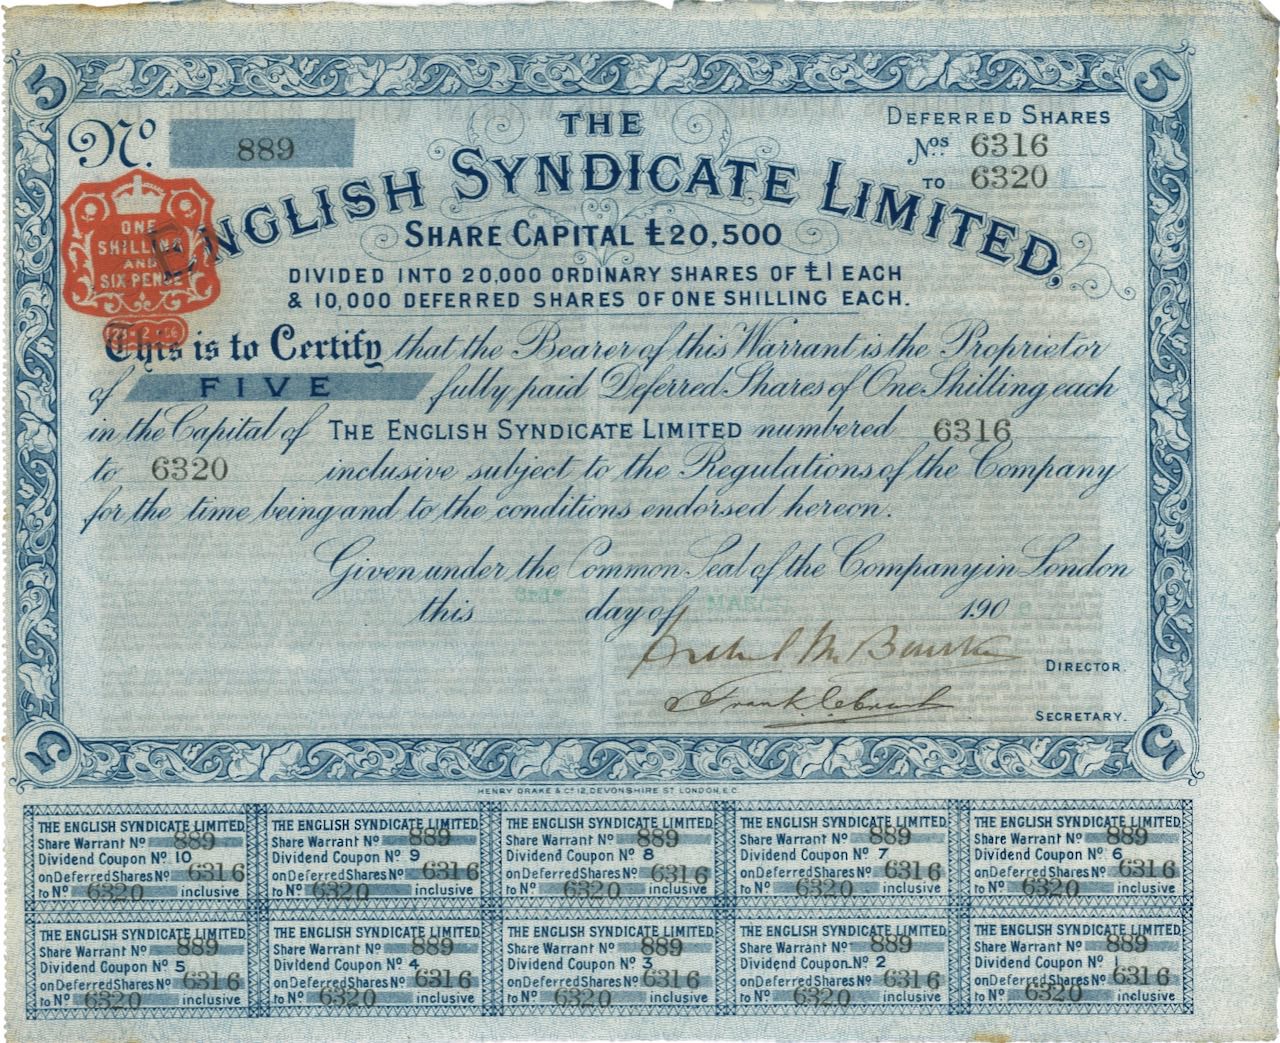 5
5
No. 889
THE
ENGLISH SYNDICATE LIMITED,
DEFERRED SHARES
Nos. 6316
TO 6320
ONE
SHILLING
AND
SIX PENCE
SHARE CAPITAL £20,500
DIVIDED INTO 20,000 ORDINARY SHARES OF £1 EACH
& 10,000 DEFERRED SHARES OF ONE SHILLING EACH.
This is to Certify that the Bearer of this Warrant is the Proprietor
of FIVE fully paid Deferred Shares of One Shilling each
in the Capital of THE ENGLISH SYNDICATE LIMITED numbered 6316
to 6320 inclusive subject to the Regulations of the Company
for the time being and to the conditions endorsed hereon.
Given under the Common Seal of the Company in London
this day of MARCH 190
DIRECTOR.
Frank
SECRETARY.
5
5
HENRY DRAKE & Co 12, DEVONSHIRE ST LONDON, E.C.
THE ENGLISH SYNDICATE LIMITED
Share Warrant No 889
Dividend Coupon No. 10
on Deferred Shares No 6316
to No 6320 inclusive
THE ENGLISH SYNDICATE LIMITED
Share Warrant No 889
Dividend Coupon No. 9
on Deferred Shares No 6316
to No 6320 inclusive
THE ENGLISH SYNDICATE LIMITED
Share Warrant No 889
Dividend Coupon No. 8
on Deferred Shares No 6316
to No 6320 inclusive
THE ENGLISH SYNDICATE LIMITED
Share Warrant No 889
Dividend Coupon No. 7
on Deferred Shares No 6316
to No 6320 inclusive
THE ENGLISH SYNDICATE LIMITED
Share Warrant No 889
Dividend Coupon No. 6
on Deferred Shares No 6316
to No 6320 inclusive
THE ENGLISH SYNDICATE LIMITED
Share Warrant No 889
Dividend Coupon No. 5
on Deferred Shares No 6316
to No 6320 inclusive
THE ENGLISH SYNDICATE LIMITED
Share Warrant No 889
Dividend Coupon No. 4
on Deferred Shares No 6316
to No 6320 inclusive
THE ENGLISH SYNDICATE LIMITED
Share Warrant No 889
Dividend Coupon No. 3
on Deferred Shares No 6316
to No 6320 inclusive
THE ENGLISH SYNDICATE LIMITED
Share Warrant No 889
Dividend Coupon No. 2
on Deferred Shares No 6316
to No 6320 inclusive
THE ENGLISH SYNDICATE LIMITED
Share Warrant No 889
Dividend Coupon No. 1
on Deferred Shares No 6316
to No 6320 inclusive